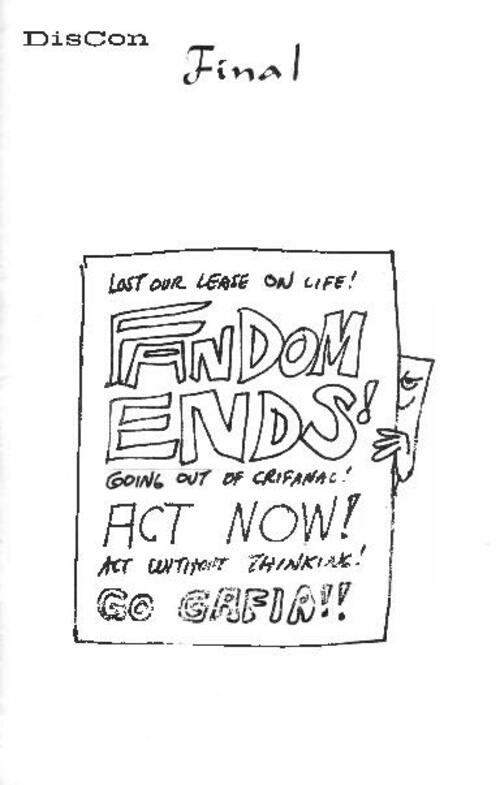 DisCon
Final
LOST OUR LEASE ON LIFE!
FANDOM
ENDS!
GOING OUT OF CRIFANAC!
ACT NOW!
ACT WITHOUT THINKING!
GO GAFIA!!